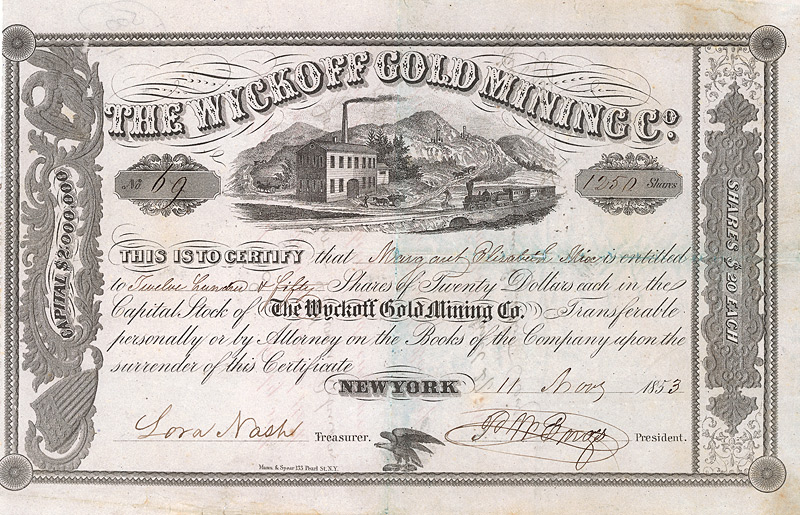 THE WYCKOFF GOLD MINING Co.
No 69
1250 Shares
CAPITAL $2.000.000
SHARES $20 EACH.
THIS IS TO CERTIFY that Elizabeth is entitled
to Twelve hundred & fifty Shares of Twenty Dollars each in the
Capital Stock of The Wyckoff Gold Mining Co. Transferable
personally or by Attorney on the Books of the Company upon the
surrender of this Certificate
NEW YORK 11 Nov 1853
Lora Nash Treasurer. President.
Mann & Spear 135 Pearl St. N.Y.